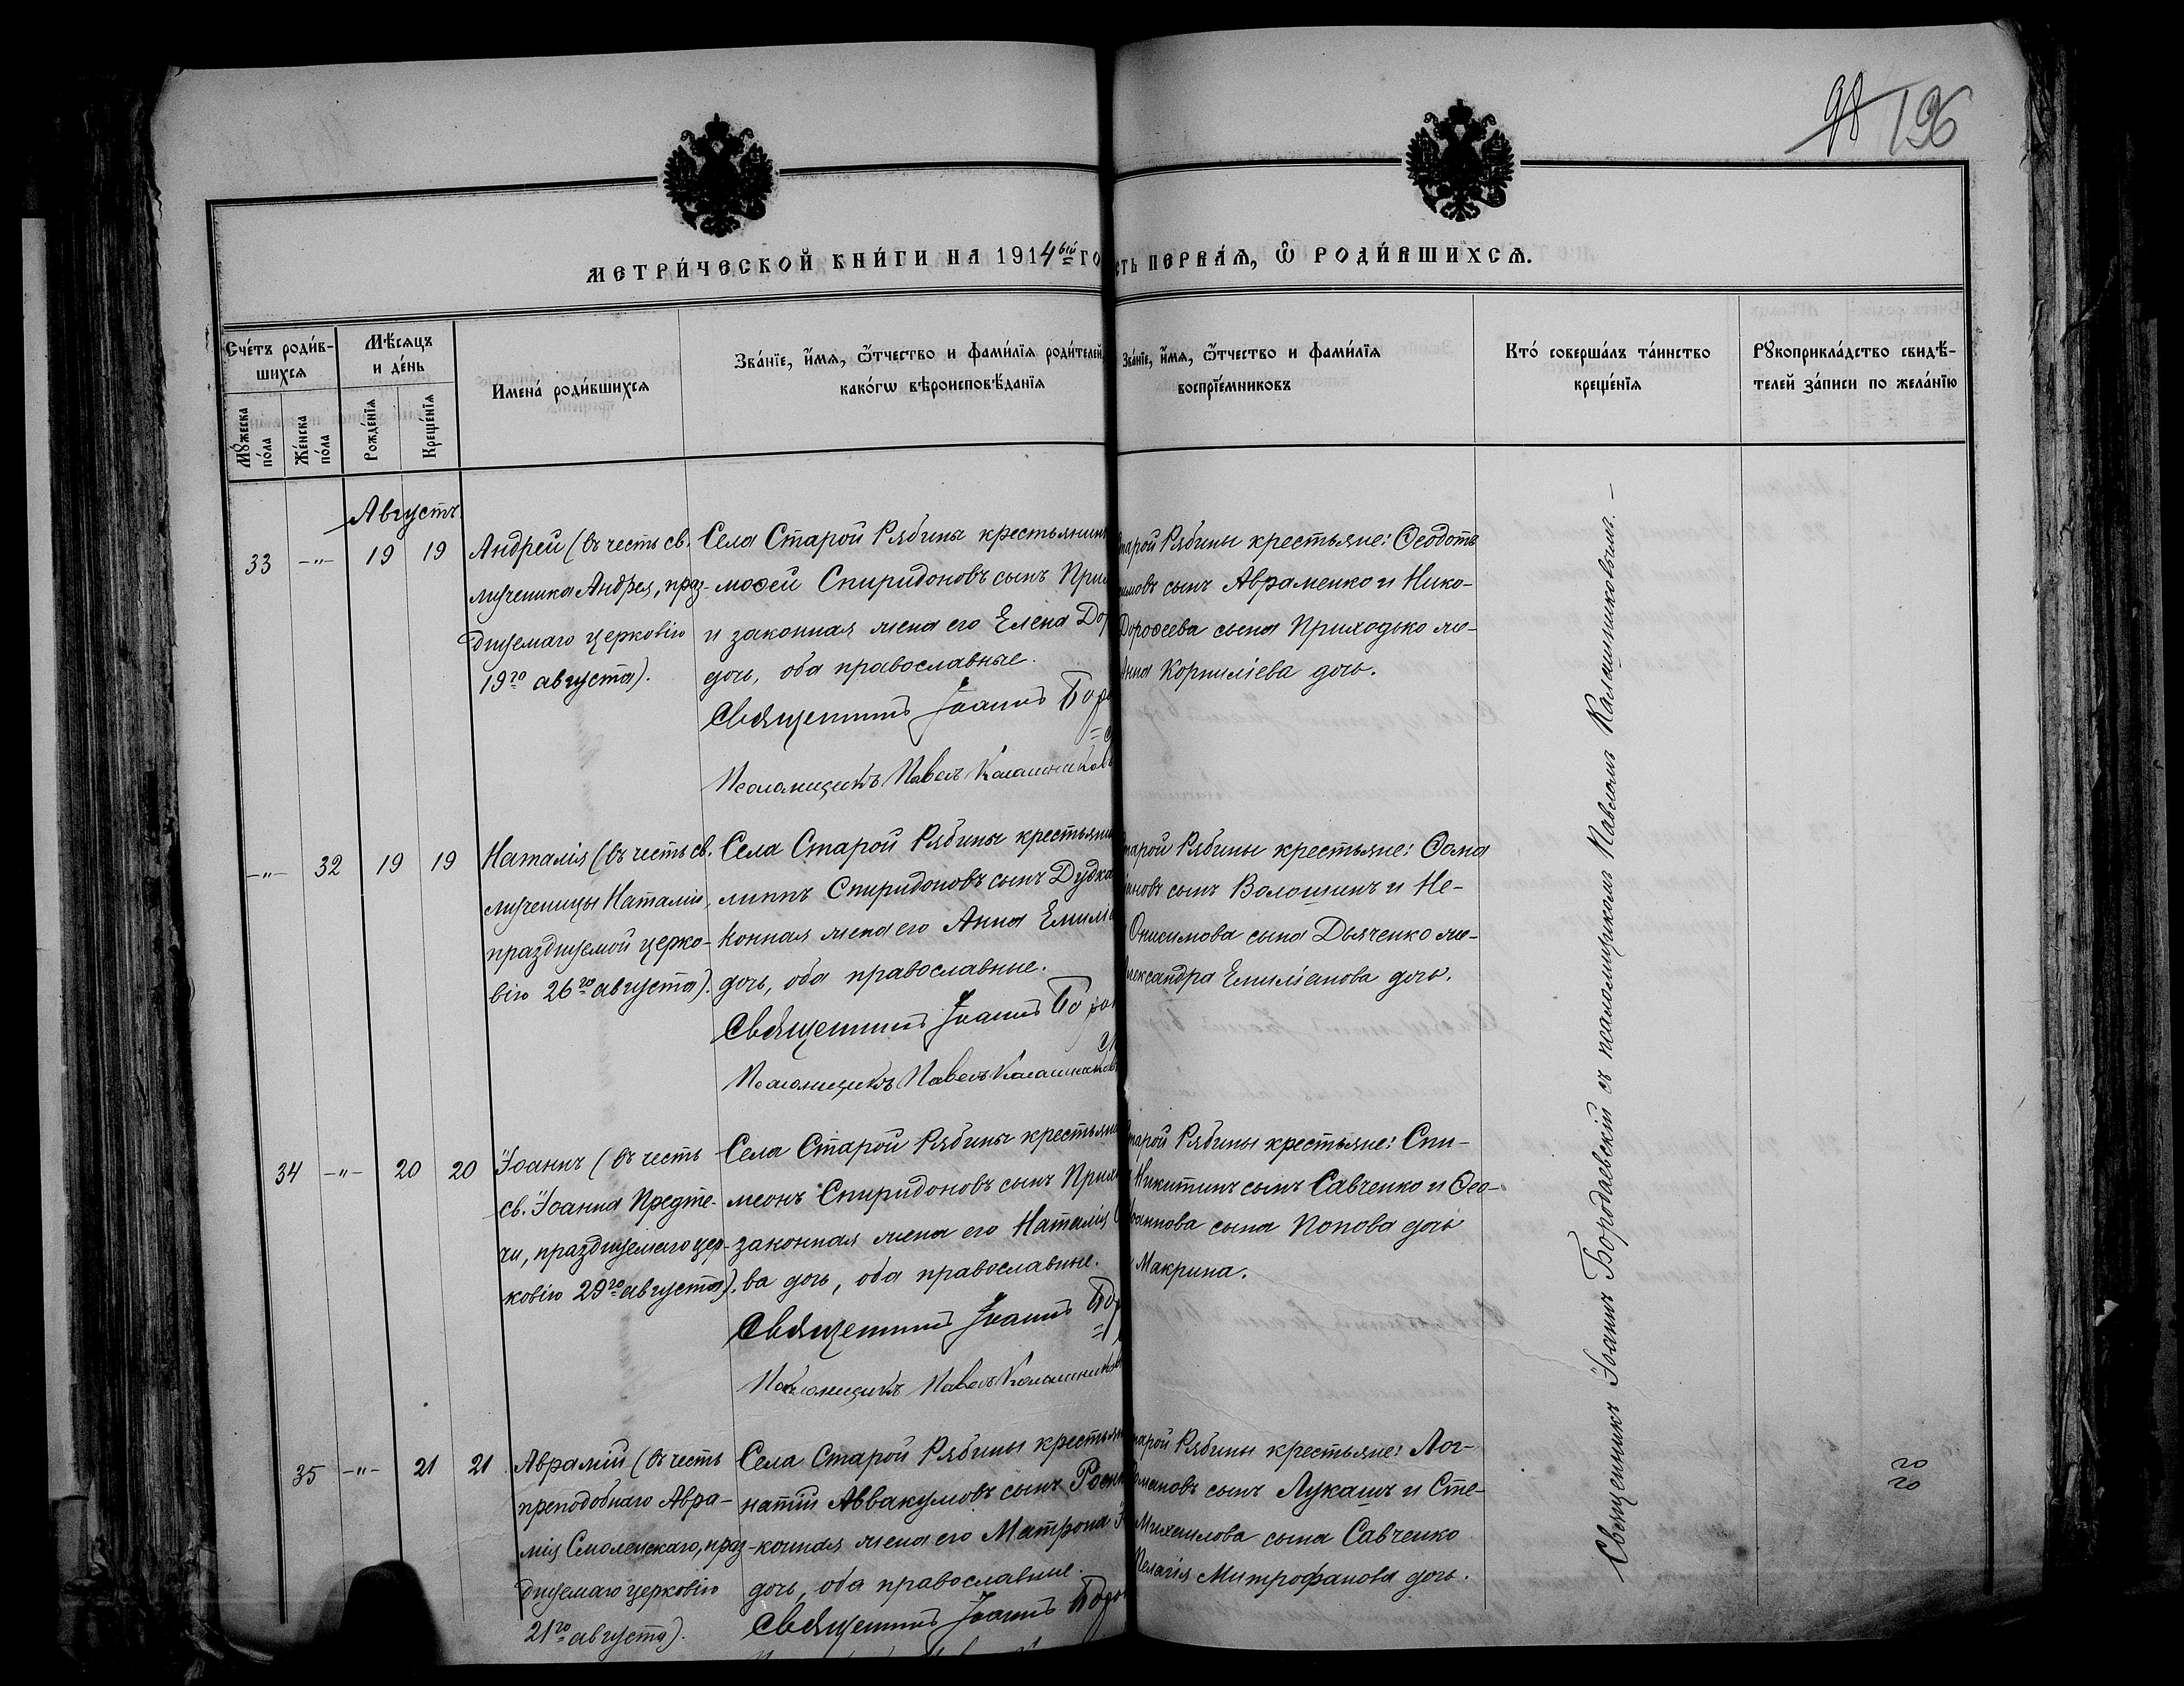 98 196
МЕТРИ́ЧЕСКОЙ КНИ́ГИ НА 1914ый ГО
СТЬ ПЕРВАѦ, Ѡ РОДИ́ВШИХСѦ.
Сче́тъ роди́в-
шихся
Мꙋ́жеска
по́ла
Же́нска
по́ла
Мѣ́сяцъ
и де́нь
Рожде́нїя
Креще́нїя
Имена́ роди́вшихся
Зва́нїе, и́мя, ѻ́тчество и фами́лїя роди́телей,
како́гѡ вѣроисповѣ́данїя
Зва́нїе, и́мя, ѻ́тчество и фами́лїя
воспрїе́мниковъ
Кто́ соверша́лъ та́инство
креще́нїя
Рꙋкоприкла́дство свидѣ́-
телей за́писи по жела́нїю
Августъ
33 -"- 19 19
Андрей (въ честь св.
мученика Андрея, праз-
днуемаго церковію
19го августа).
Села Старой Рябины крестьянинъ
моѳей Спиридоновъ сынъ При
и законная жена его Елена Дор
дочь, оба православные.
Священникъ Іоаннъ Боро
Псаломщикъ Павелъ Калашниковъ
тарой Рябины крестьяне: Ѳеодотъ
имовъ сынъ Авраменко и Нико-
Дороѳеева сына Приходько же-
Анна Корниліева дочь.
-"- 32 19 19
Наталія (въ честь св.
мученицы Наталіи,
празднуемой церко-
вію 26го августа).
Села Старой Рябины крестьянин
липпъ Спиридоновъ сынъ Дудка
конная жена его Анна Емилі
дочь, оба православные.
Священникъ Іоаннъ Боро
Псаломщикъ Павелъ Калашниковъ
тарой Рябины крестьяне: Ѳома
иновъ сынъ Волошинъ и Не-
Онисимова сына Дьяченко же-
лександра Емиліанова дочь.
34 -"- 20 20
Іоаннъ (въ честь
св. Іоанна Предте-
чи, празднуемаго цер-
ковію 29го августа).
Села Старой Рябины крестьяни
меонъ Спиридоновъ сынъ Прих
законная жена его Наталія
ва дочь, оба православные.
Священникъ Іоаннъ Бор
Псаломщикъ Павелъ Калашников
тарой Рябины крестьяне: Спи-
Никитинъ сынъ Савченко и Ѳео-
Іоаннова сына Попова дочь
Макрина.
35 -"- 21 21
Аврамій (въ честь
преподобнаго Авра-
мія Смоленскаго, праз-
днуемаго церковію
21го августа).
Села Старой Рябины крестьян
натій Аввакумовъ сынъ
конная жена его Матрона
дочь, оба православные.
Священникъ Іоаннъ Боро
тарой Рябины крестьяне: Лог-
омановъ сынъ Лукашъ и Сте-
Михаилова сына Савченко
Пелагія Митрофанова дочь.
Священникъ Іоаннъ Бородаевскій съ псаломщикомъ Павломъ Калашниковымъ.